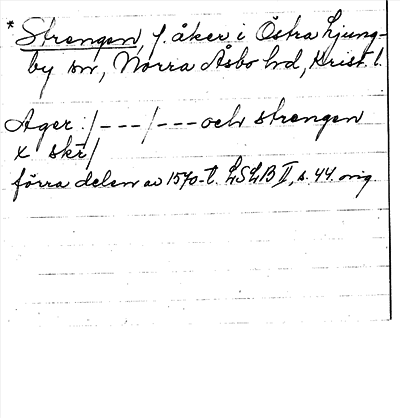 * Strengen, f. åker i Östra Ljung-
by sn, Norra Åsbo hd, Krist. l.
Ager: /---/--- och strengen
x skr/
förra delen av 1570-t. LSLB II, s. 44. orig.